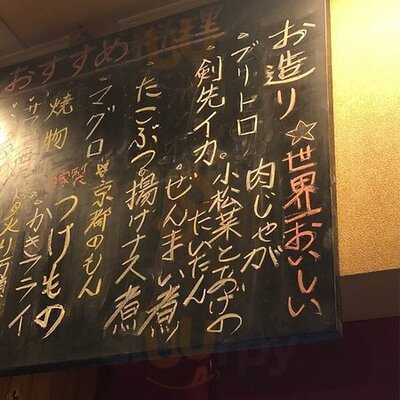 おすすめ
お造り
☆世界一おいしい
肉じゃが
・ブリトロ
・小松菜とあげの
たいたん
・剣先イカ
・ぜんまい煮
・たこぶつ
揚げナス煮
・マグロ
京都のもん
自家製
つけもの
焼物
・かきフライ